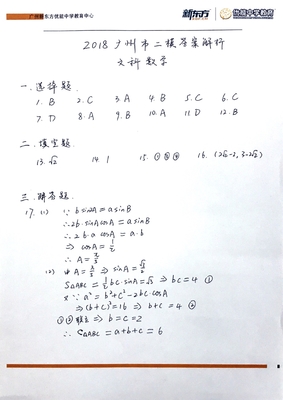 广州新东方优能中学教育中心
新东方 优能中学教育
2018广州市二模答案解析
文科数学
一.选择题.
1. B 2. C 3. A 4. B 5. C 6. C
7. D 8. A 9. B 10. A 11. D 12. B
二.填空题
13. √2 14. 1 15. ①③④ 16. (2√2-3, 3-2√2)
三.解答题.
17. (1) ∵ b sin2A = a sinB
∴ 2b·sinA cosA = a sinB
∴ 2·b·a cosA = a·b
⇒ cosA = 1/2
∴ A = π/3
(2) 由A = π/3 ⇒ sinA = √3/2
S△ABC = 1/2 bc·sinA = √3 ⇒ bc = 4 ①
又∵ a² = b² + c² - 2bc·cosA
⇒ (b+c)² = 16 ⇒ b+c = 4 ②
①②联立 ⇒ b = c = 2
∴ C△ABC = a+b+c = 6